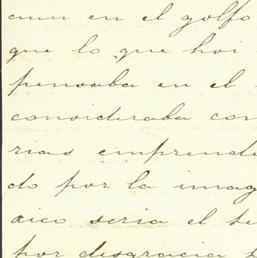 aun en el golfo
que lo que hoi
pensaba en el
considerada con
rias emprende
do por la imag
xico seria el se
por desgracia